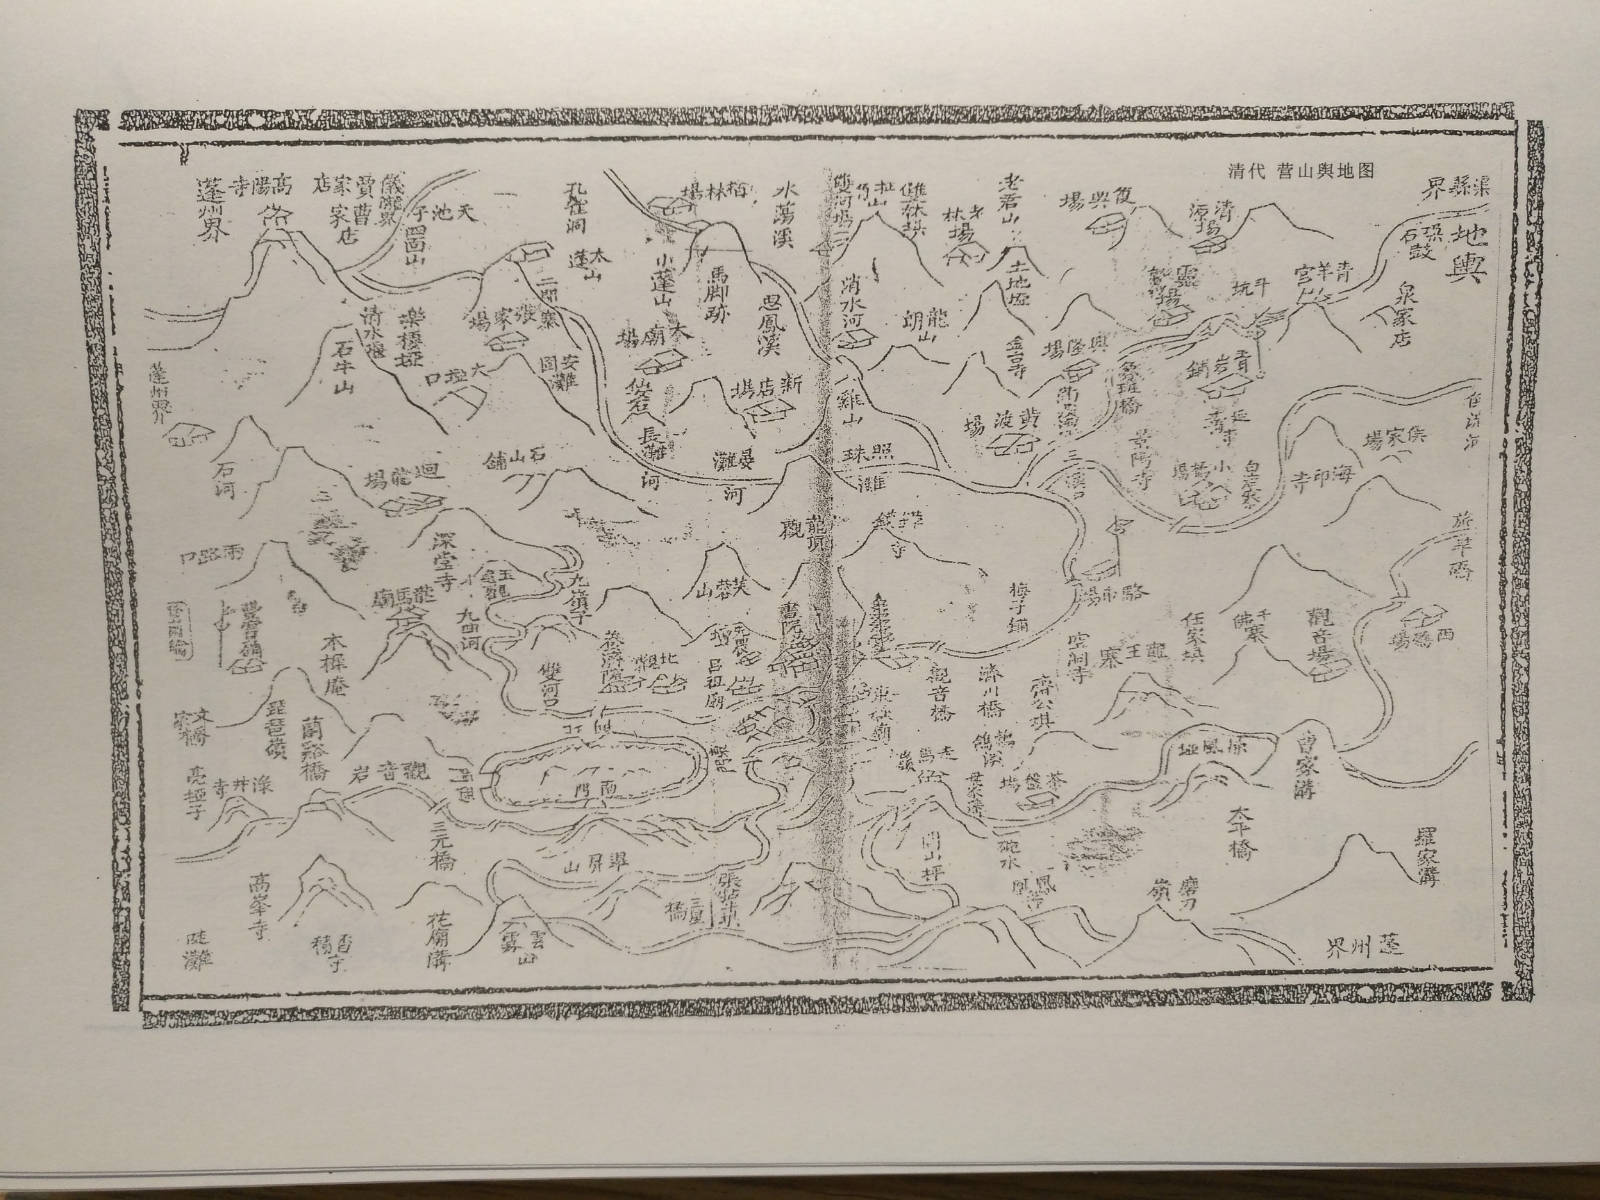 清代 营山舆地图
地輿
渠縣界
石鼓
泉家店
青羊宮
清源場
復興場
老君山
土地埡
金台寺
老林場
雙林埧
雙河場
水蕩溪
柏林場
孔雀洞
太蓬山
小蓬山
馬脚跡
思鳳溪
消水河
龍朗山
靈鷲場
興隆場
青岩鋪
象班橋
景陽寺
三溪口
黄波場
雞山
照珠灘
新店場
太廟場
仙石
長灘河
晏灘河
安固灘
二郎寨
張家場
天池子
四固山
儀隴界
賈家店
曹家店
高陽寺
蓬州界
清水堰
樂樓埡
石牛山
大埡口
石山鋪
迴龍場
石河
蓬州界
侯家場
海印寺
小橋場
駱市場
梅子鋪
龍頂觀
芙蓉山
九嶺子
深堂寺
玉皇觀
龍馬廟
九曲河
雙河口
木樨庵
雨路口
琵琶嶺
蘭谿橋
文家橋
亮埡子
淥井寺
觀音岩
三元橋
北觀
呂祖廟
東嶽廟
觀音橋
濟川橋
齊公埧
空洞寺
龍王寨
任家埧
千佛寨
觀音場
西橋場
曹家溝
涼風埡
茶盤場
走馬嶺
南門
翠屏山
碗水
鳳凰寺
磨刀嶺
太平橋
羅家溝
蓬州界
三星橋
雲霧山
花廟溝
高峯寺
香積寺
陡灘